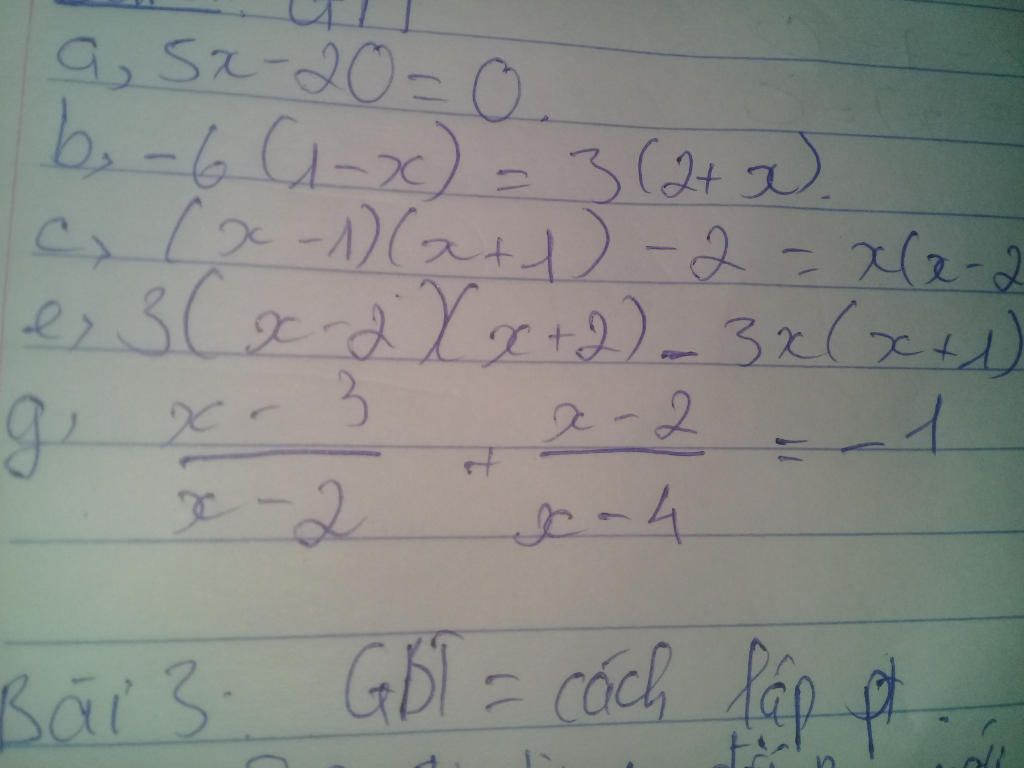 GPT
a, 5x - 20 = 0.
b, -6(1-x) = 3(2+x).
c, (x-1)(x+1) - 2 = x(x-2
e, 3(x-2)(x+2) - 3x(x+1)
g, \frac{x-3}{x-2} + \frac{x-2}{x-4} = -1
Bài 3: GBT = cách lập pt.